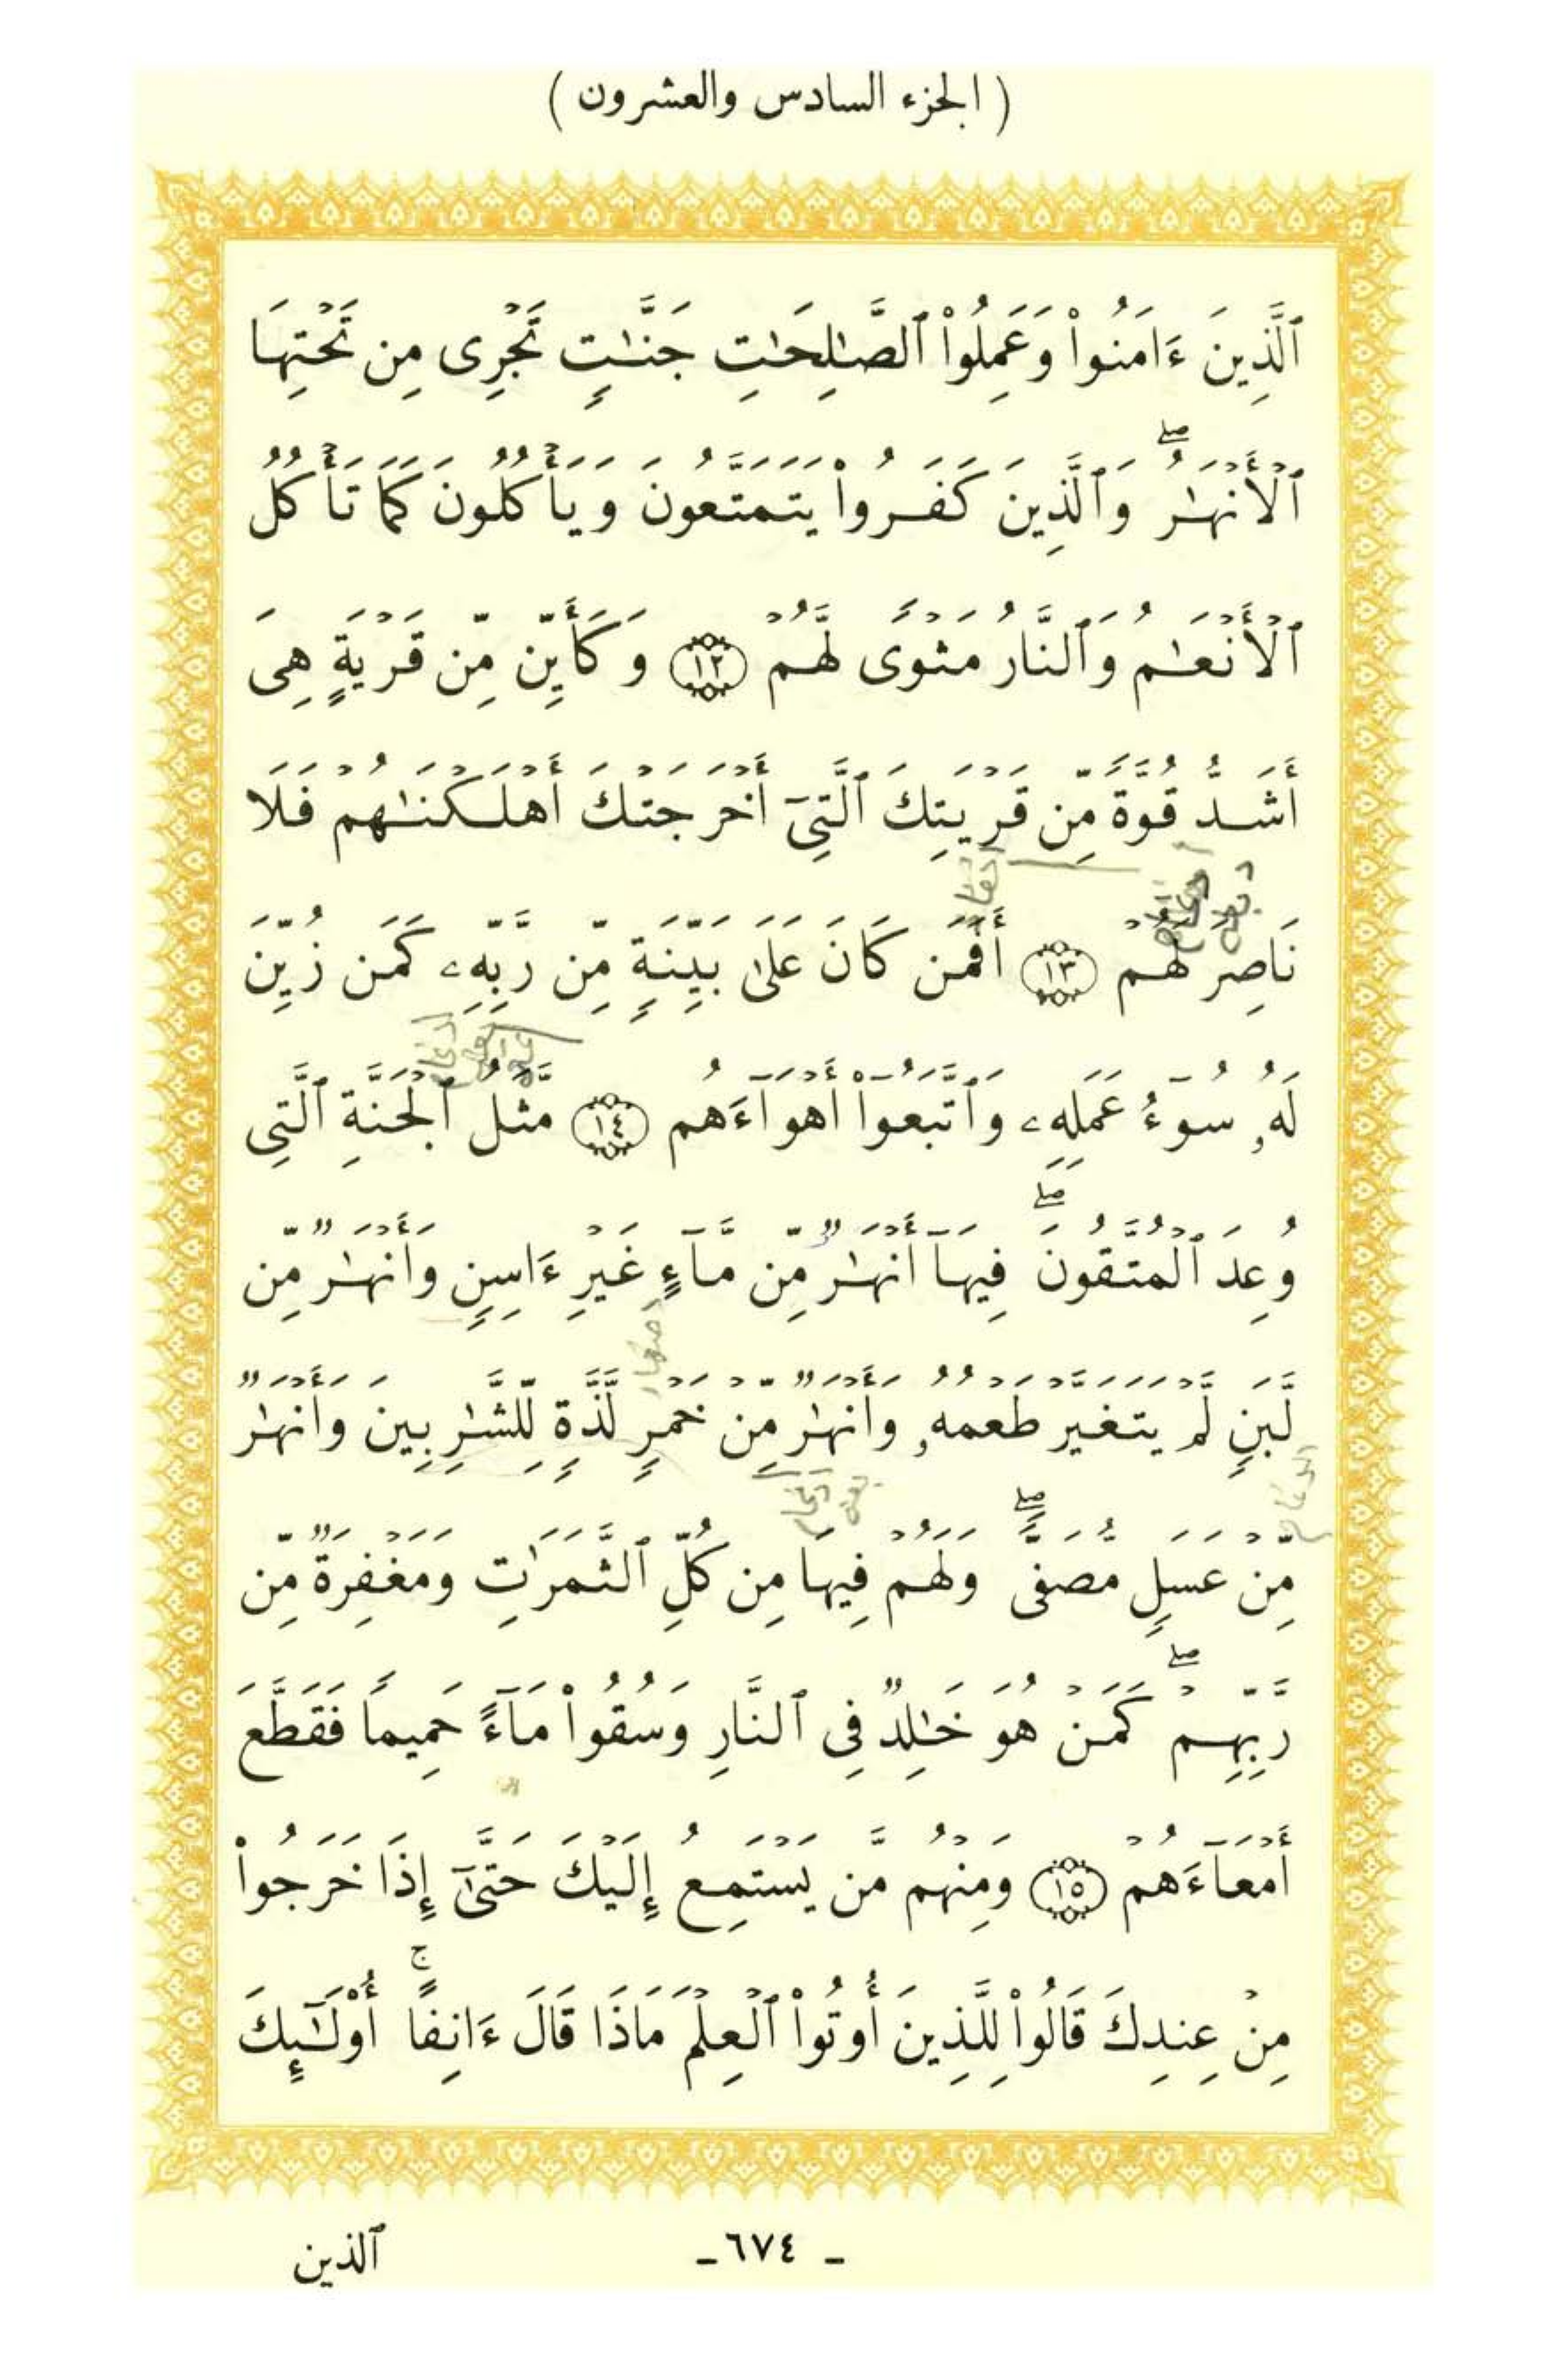 ( الجزء السادس والعشرون )
ٱلَّذِينَ ءَامَنُواْ وَعَمِلُواْ ٱلصَّـٰلِحَـٰتِ جَنَّـٰتٍ تَجْرِى مِن تَحْتِهَا
ٱلْأَنْهَـٰرُ ۖ وَٱلَّذِينَ كَفَرُواْ يَتَمَتَّعُونَ وَيَأْكُلُونَ كَمَا تَأْكُلُ
ٱلْأَنْعَـٰمُ وَٱلنَّارُ مَثْوًى لَّهُمْ ١٢ وَكَأَيِّن مِّن قَرْيَةٍ هِىَ
أَشَدُّ قُوَّةً مِّن قَرْيَتِكَ ٱلَّتِىٓ أَخْرَجَتْكَ أَهْلَكْنَـٰهُمْ فَلَا
نَاصِرَ لَهُمْ ١٣ أَفَمَن كَانَ عَلَىٰ بَيِّنَةٍ مِّن رَّبِّهِۦ كَمَن زُيِّنَ
لَهُۥ سُوٓءُ عَمَلِهِۦ وَٱتَّبَعُوٓاْ أَهْوَآءَهُم ١٤ مَّثَلُ ٱلْجَنَّةِ ٱلَّتِى
وُعِدَ ٱلْمُتَّقُونَ ۖ فِيهَآ أَنْهَـٰرٌ مِّن مَّآءٍ غَيْرِ ءَاسِنٍ وَأَنْهَـٰرٌ مِّن
لَّبَنٍ لَّمْ يَتَغَيَّرْ طَعْمُهُۥ وَأَنْهَـٰرٌ مِّنْ خَمْرٍ لَّذَّةٍ لِّلشَّـٰرِبِينَ وَأَنْهَـٰرٌ
مِّنْ عَسَلٍ مُّصَفًّى ۖ وَلَهُمْ فِيهَا مِن كُلِّ ٱلثَّمَرَٰتِ وَمَغْفِرَةٌ مِّن
رَّبِّهِمْ ۖ كَمَنْ هُوَ خَـٰلِدٌ فِى ٱلنَّارِ وَسُقُواْ مَآءً حَمِيمًا فَقَطَّعَ
أَمْعَآءَهُمْ ١٥ وَمِنْهُم مَّن يَسْتَمِعُ إِلَيْكَ حَتَّىٰٓ إِذَا خَرَجُواْ
مِنْ عِندِكَ قَالُواْ لِلَّذِينَ أُوتُواْ ٱلْعِلْمَ مَاذَا قَالَ ءَانِفًا ۚ أُوْلَـٰٓئِكَ
ـ ٦٧٤ ـ
ٱلذين